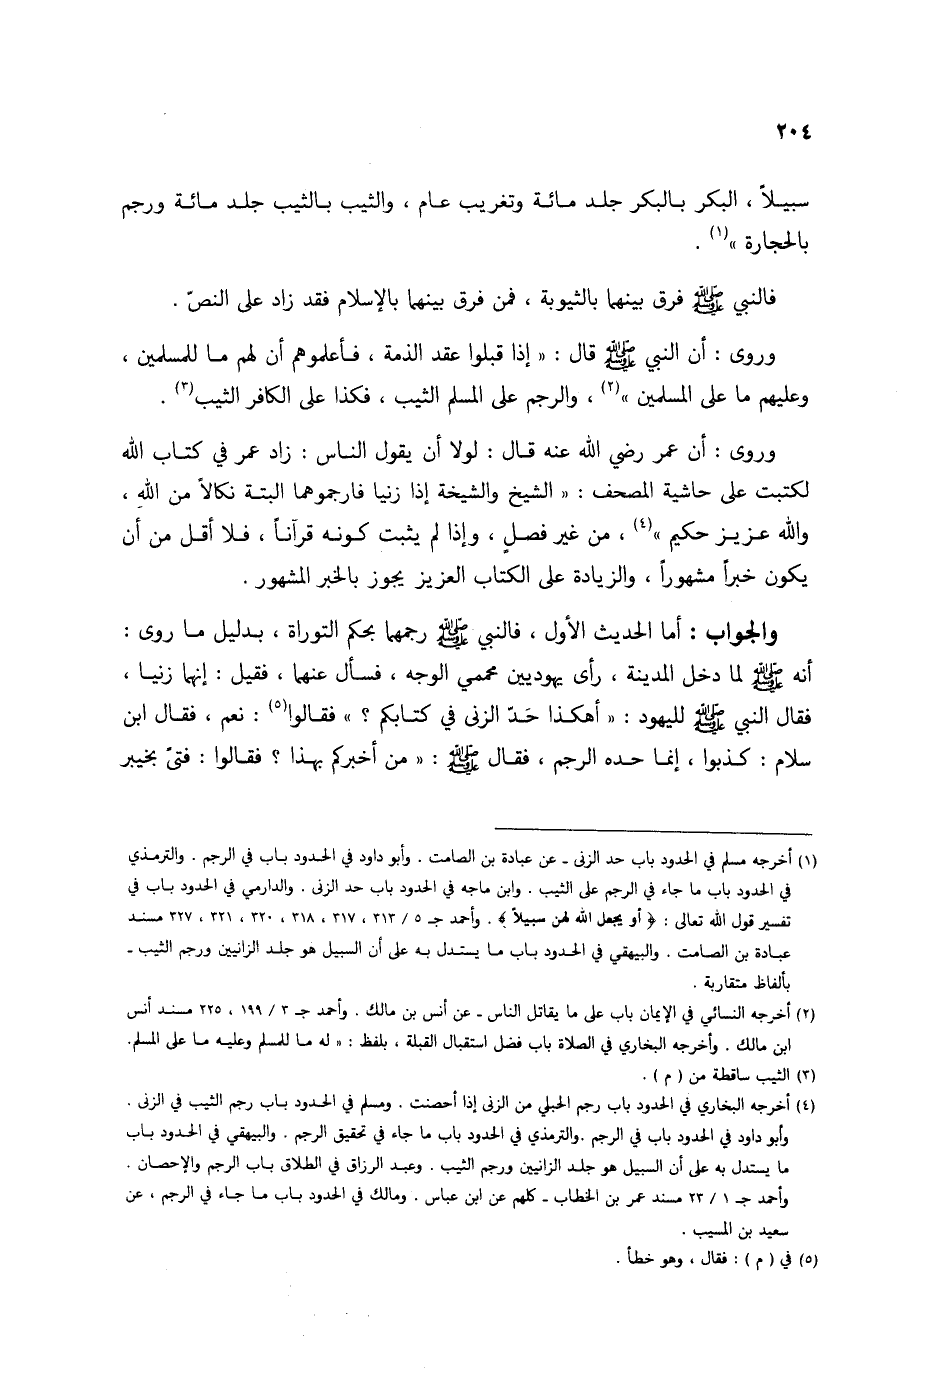 ٢٠٤
سبيلاً ، البكر بالبكر جلد مائة وتغريب عام ، والثيب بالثيب جلد مائة ورجم
بالحجارة »(١) .
فالنبي ﷺ فرق بينهما بالثيوبة ، فمن فرق بينهما بالإسلام فقد زاد على النصّ .
وروى : أن النبي ﷺ قال : « إذا قبلوا عقد الذمة ، فأعلموهم أن لهم ما للمسلمين ،
وعليهم ما على المسلمين »(٢) ، والرجم على المسلم الثيب ، فكذا على الكافر الثيب(٣) .
وروى : أن عمر رضي الله عنه قال : لولا أن يقول الناس : زاد عمر في كتاب الله
لكتبت على حاشية المصحف : « الشيخ والشيخة إذا زنيا فارجموهما البتة نكالاً من الله ،
والله عزيز حكيم »(٤) ، من غير فصلٍ ، وإذا لم يثبت كونه قرآناً ، فلا أقل من أن
يكون خبراً مشهوراً ، والزيادة على الكتاب العزيز يجوز بالخبر المشهور .
والجواب : أما الحديث الأول ، فالنبي ﷺ رجمهما بحكم التوراة ، بدليل ما روى :
أنه ﷺ لما دخل المدينة ، رأى يهوديين محممي الوجه ، فسأل عنهما ، فقيل : إنهما زنيا ،
فقال النبي ﷺ لليهود : « أهكذا حَدّ الزنى في كتابكم ؟ » فقالوا(٥) : نعم ، فقال ابن
سلام : كذبوا ، إنما حده الرجم ، فقال ﷺ : « من أخبركم بهذا ؟ فقالوا : فتىً بخيبر
(١) أخرجه مسلم في الحدود باب حد الزنى ـ عن عبادة بن الصامت . وأبو داود في الحدود باب في الرجم . والترمذي
في الحدود باب ما جاء في الرجم على الثيب . وابن ماجه في الحدود باب حد الزنى . والدارمي في الحدود باب في
تفسير قول الله تعالى : ﴿ أو يجعل الله لهن سبيلاً ﴾ . وأحمد جـ ٥ / ٣١٣ ، ٣١٧ ، ٣١٨ ، ٣٢٠ ، ٣٢١ ، ٣٢٧ مسند
عبادة بن الصامت . والبيهقي في الحدود باب ما يستدل به على أن السبيل هو جلد الزانيين ورجم الثيب ـ
بألفاظ متقاربة .
(٢) أخرجه النسائي في الإيمان باب على ما يقاتل الناس ـ عن أنس بن مالك . وأحمد جـ ٣ / ١٩٩ ، ٢٢٥ مسند أنس
ابن مالك . وأخرجه البخاري في الصلاة باب فضل استقبال القبلة ، بلفظ : « له ما للمسلم وعليه ما على المسلم.
(٣) الثيب ساقطة من ( م ) .
(٤) أخرجه البخاري في الحدود باب رجم الحبلي من الزنى إذا أحصنت . ومسلم في الحدود باب رجم الثيب في الزنى .
وأبو داود في الحدود باب في الرجم .والترمذي في الحدود باب ما جاء في تحقيق الرجم . والبيهقي في الحدود باب
ما يستدل به على أن السبيل هو جلد الزانيين ورجم الثيب . وعبد الرزاق في الطلاق باب الرجم والإحصان .
وأحمد جـ ١ / ٢٣ مسند عمر بن الخطاب ـ كلهم عن ابن عباس . ومالك في الحدود باب ما جاء في الرجم ، عن
سعيد بن المسيب .
(٥) في ( م ) : فقال ، وهو خطأ .